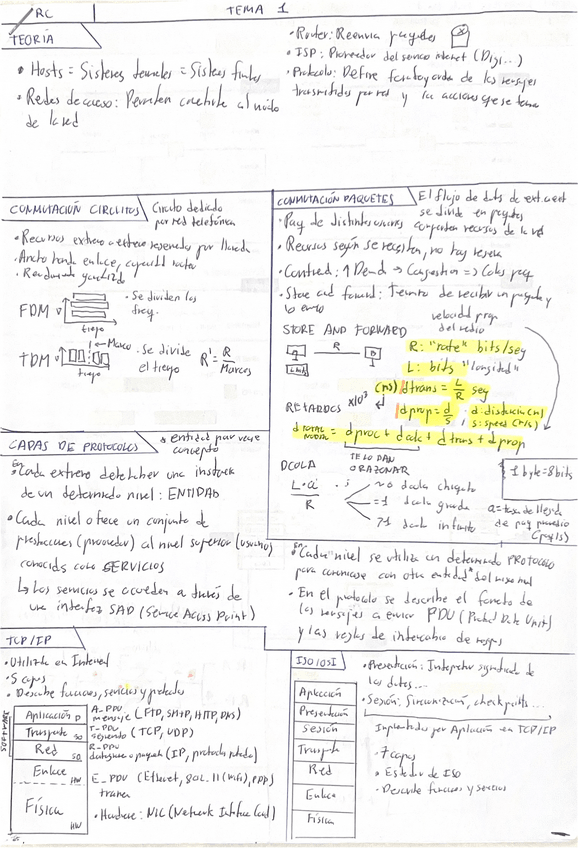 RC
TEMA 1
TEORÍA
• Hosts = Sistemas terminales = Sistemas finales
• Redes de acceso: Permiten conectarte al núcleo
de la red
• Router: Reenvia paquetes
• ISP: Proveedor del servicio internet (Digi...)
• Protocolo: Define formato y orden de los mensajes
transmitidos por red y las acciones que se toman
CONMUTACIÓN CIRCUITOS
Circuito dedicado
por red telefónica
• Recursos extremo a extremo reservado por llamada
• Ancho banda enlace, capacidad
• Rendimiento garantizado
FDM
tiempo
• Se dividen las
freq.
TDM
Marco
tiempo
• Se divide
el tiempo
R' = R / Marcos
CONMUTACIÓN PAQUETES
El flujo de datos de ext. a ext
se divide en paquetes
• Paq de distintos usuarios comparten recursos de la red
• Recursos según se necesiten, no hay reserva
• Contired: ↑ Demd → Congestion => Colas paq
• Store and forward: Termino de recibir un paquete y
lo envio
velocidad prop
del medio
STORE AND FORWARD
R
R: "rate" bits/seg
L: bits "longitud"
RETARDOS
x10³
(ms) dtrans = L/R seg
dprop = d/s
d: distancia (m)
s: speed (m/s)
d TOTAL NODAL = dproc + dcola + dtrans + dprop
TE LO DAN
O RAZONAR
1 byte = 8 bits
DCOLA
L·a / R
~0 dcola chiquito
=1 dcola grande
>1 dcola infinito
a = tasa de llegada
de paq promedio
(paq/s)
CAPAS DE PROTOCOLOS
* entidad par
concepto
• En Cada extremo debe haber una instancia
de un determinado nivel: ENTIDAD
• Cada nivel ofrece un conjunto de
prestaciones (proveedor) al nivel superior (usuario)
conocido como SERVICIOS
↳ Los servicios se acceden a través de
una interfaz SAP (Service Access Point)
• En Cada nivel se utiliza un determinado PROTOCOLO
para comunicarse con otra entidad* del mismo nivel
• En el protocolo se describe el formato de
los mensajes a enviar PDU (Protocol Data Unit)
y las reglas de intercambio de
TCP/IP
• Utilizada en Internet
• 5 capas
• Describe funciones, servicios y protocolos
Aplicación
A-PDU
mensaje (FTP, SMTP, HTTP, DNS)
Transporte SO
T-PDU
segmento (TCP, UDP)
Red SO
R-PDU
datagrama o paquete (IP, protocolo
Enlace HW
E-PDU (Ethernet, 802.11 (Wifi), PPP)
trama
Física HW
• Hardware: NIC (Network Interface Card)
ISO/OSI
Aplicación
Presentación
Sesión
Transporte
Red
Enlace
Física
• Presentación: Interpretar significado de
los datos...
• Sesión: Sincronización, checkpoints...
Implementadas por Aplicación en TCP/IP
• 7 capas
• Estandar de ISO
• Describe funciones y servicios